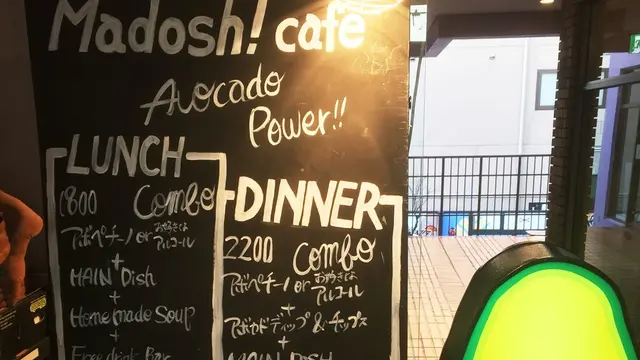 Madosh! cafe
Avocado
Power!!
LUNCH
1800 Combo
アボペチーノ or お好きな
アルコール
+
MAIN Dish
+
Homemade Soup
+
Free drink Bar
DINNER
2200 Combo
アボペチーノ or お好きな
アルコール
+
アボカドディップ & チップス
+
MAIN DISH